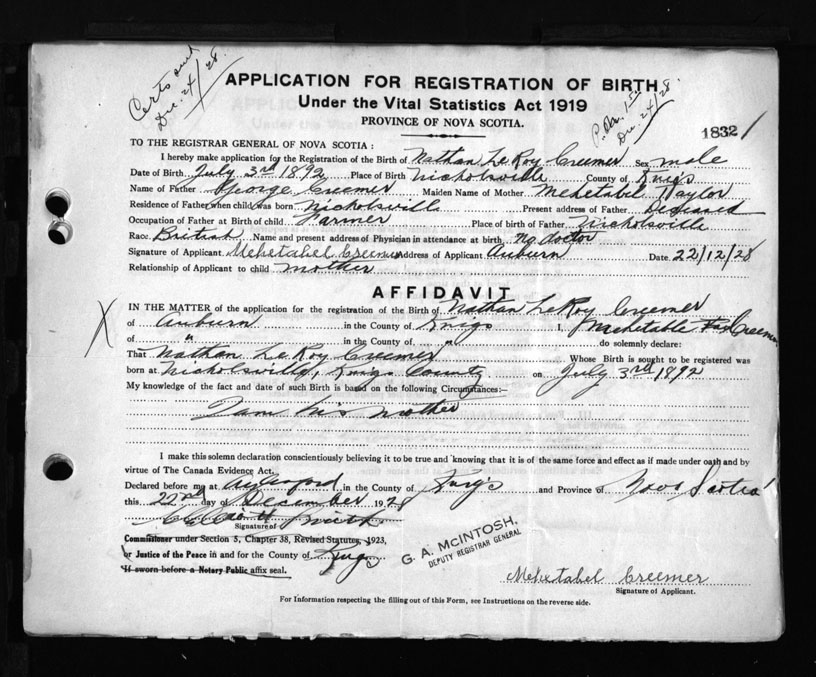 Certs sent
Dec. 24/28.
APPLICATION FOR REGISTRATION OF BIRTH
Under the Vital Statistics Act 1919
PROVINCE OF NOVA SCOTIA.
Dec. 24/28.
18321
TO THE REGISTRAR GENERAL OF NOVA SCOTIA:
I hereby make application for the Registration of the Birth of Nathan LeRoy Creemer Sex male
Date of Birth July 3rd 1892 Place of Birth Nicholsville County of Kings
Name of Father George Creemer Maiden Name of Mother Mehetabel Taylor
Residence of Father when child was born Nicholsville Present address of Father Deceased
Occupation of Father at Birth of child Farmer Place of birth of Father Nicholsville
Race British Name and present address of Physician in attendance at birth no doctor
Signature of Applicant Mehetabel Creemer Address of Applicant Auburn Date 22/12/28
Relationship of Applicant to child mother
AFFIDAVIT
X
IN THE MATTER of the application for the registration of the Birth of Nathan LeRoy Creemer
of Auburn in the County of Kings I, Mehetable Creemer
of " in the County of " do solemnly declare:
That Nathan LeRoy Creemer Whose Birth is sought to be registered was
born at Nicholsville, Kings County on July 3rd 1892
My knowledge of the fact and date of such Birth is based on the following Circumstances:—
I am his mother
I make this solemn declaration conscientiously believing it to be true and knowing that it is of the same force and effect as if made under oath and by
virtue of The Canada Evidence Act.
Declared before me at Aylesford in the County of Kings and Province of Nova Scotia
this 22nd day of December 1928
Signature of
Commissioner under Section 5, Chapter 38, Revised Statutes, 1923,
or Justice of the Peace in and for the County of Kings
If sworn before a Notary Public affix seal.
G. A. McINTOSH,
DEPUTY REGISTRAR GENERAL
Mehetabel Creemer
Signature of Applicant.
For Information respecting the filling out of this Form, see Instructions on the reverse side.